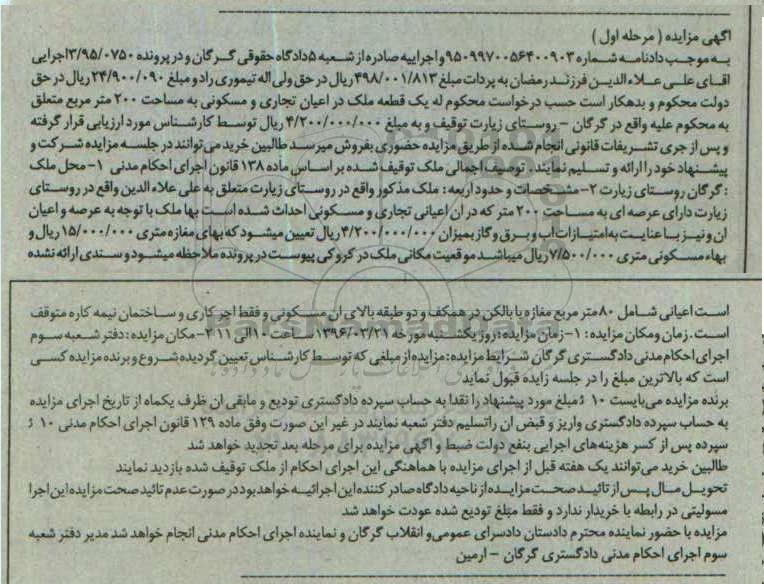 آگهی مزایده ( مرحله اول )
به موجب دادنامه شماره ۹۵۰۹۹۷۰۰۵۶۴۰۰۹۰۳ و اجراییه صادره از شعبه ۵ دادگاه حقوقی گرگان و در پرونده ۳/۹۵/۰۷۵۰ اجرایی
اقای علی علاء الدین فرزند رمضان به پردات مبلغ ۴۹۸/۰۰۱/۸۱۳ ریال در حق ولی اله تیموری راد و مبلغ ۲۴/۹۰۰/۰۹۰ ریال در حق
دولت محکوم و بدهکار است حسب درخواست محکوم له یک قطعه ملک در اعیان تجاری و مسکونی به مساحت ۲۰۰ متر مربع متعلق
به محکوم علیه واقع در گرگان – روستای زیارت توقیف و به مبلغ ۴/۲۰۰/۰۰۰/۰۰۰ ریال توسط کارشناس مورد ارزیابی قرار گرفته
و پس از جری تشریفات قانونی انجام شده از طریق مزایده حضوری بفروش میرسد طالبین خرید می‌توانند در جلسه مزایده شرکت و
پیشنهاد خود را ارائه و تسلیم نمایند. توصیف اجمالی ملک توقیف شده بر اساس ماده ۱۳۸ قانون اجرای احکام مدنی ۱- محل ملک
: گرگان روستای زیارت ۲- مشخصات و حدود اربعه : ملک مذکور واقع در روستای زیارت متعلق به علی علاء الدین واقع در روستای
زیارت دارای عرصه ای به مساحت ۲۰۰ متر که در ان اعیانی تجاری و مسکونی احداث شده است بها ملک با توجه به عرصه و اعیان
ان و نیز با عنایت به امتیازات اب و برق و گاز بمیزان ۴/۲۰۰/۰۰۰/۰۰۰ ریال تعیین میشود که بهای مغازه متری ۱۵/۰۰۰/۰۰۰ ریال و
بهاء مسکونی متری ۷/۵۰۰/۰۰۰ ریال میباشد موقعیت مکانی ملک در کروکی پیوست در پرونده ملاحظه میشود و سندی ارائه نشده
است اعیانی شامل ۸۰ متر مربع مغازه با بالکن در همکف و دو طبقه بالای ان مسکونی و فقط اجر کاری و ساختمان نیمه کاره متوقف
است. زمان ومکان مزایده : ۱- زمان مزایده : روز یکشنبه مورخه ۱۳۹۶/۰۳/۲۱ ساعت ۱۰ الی ۱۱ ۲- مکان مزایده : دفتر شعبه سوم
اجرای احکام مدنی دادگستری گرگان شرایط مزایده : مزایده از مبلغی که توسط کارشناس تعیین گردیده شروع و برنده مزایده کسی
است که بالاترین مبلغ را در جلسه زایده قبول نماید
برنده مزایده می‌بایست ۱۰ ٪ مبلغ مورد پیشنهاد را نقدا به حساب سپرده دادگستری تودیع و مابقی ان ظرف یکماه از تاریخ اجرای مزایده
به حساب سپرده دادگستری واریز و قبض ان را تسلیم دفتر شعبه نمایند در غیر این صورت وفق ماده ۱۲۹ قانون اجرای احکام مدنی ۱۰ ٪
سپرده پس از کسر هزینه‌های اجرایی بنفع دولت ضبط و اگهی مزایده برای مرحله بعد تجدید خواهد شد
طالبین خرید می‌توانند یک هفته قبل از اجرای مزایده با هماهنگی این اجرای احکام از ملک توقیف شده بازدید نمایند
تحویل مال پس از تائید صحت مزایده از ناحیه دادگاه صادر کننده این اجرائیه خواهد بود در صورت عدم تائید صحت مزایده این اجرا
مسولیتی در رابطه با خریدار ندارد و فقط مبلغ تودیع شده عودت خواهد شد
مزایده با حضور نماینده محترم دادستان دادسرای عمومی و انقلاب گرگان و نماینده اجرای احکام مدنی انجام خواهد شد مدیر دفتر شعبه
سوم اجرای احکام مدنی دادگستری گرگان – ارمین